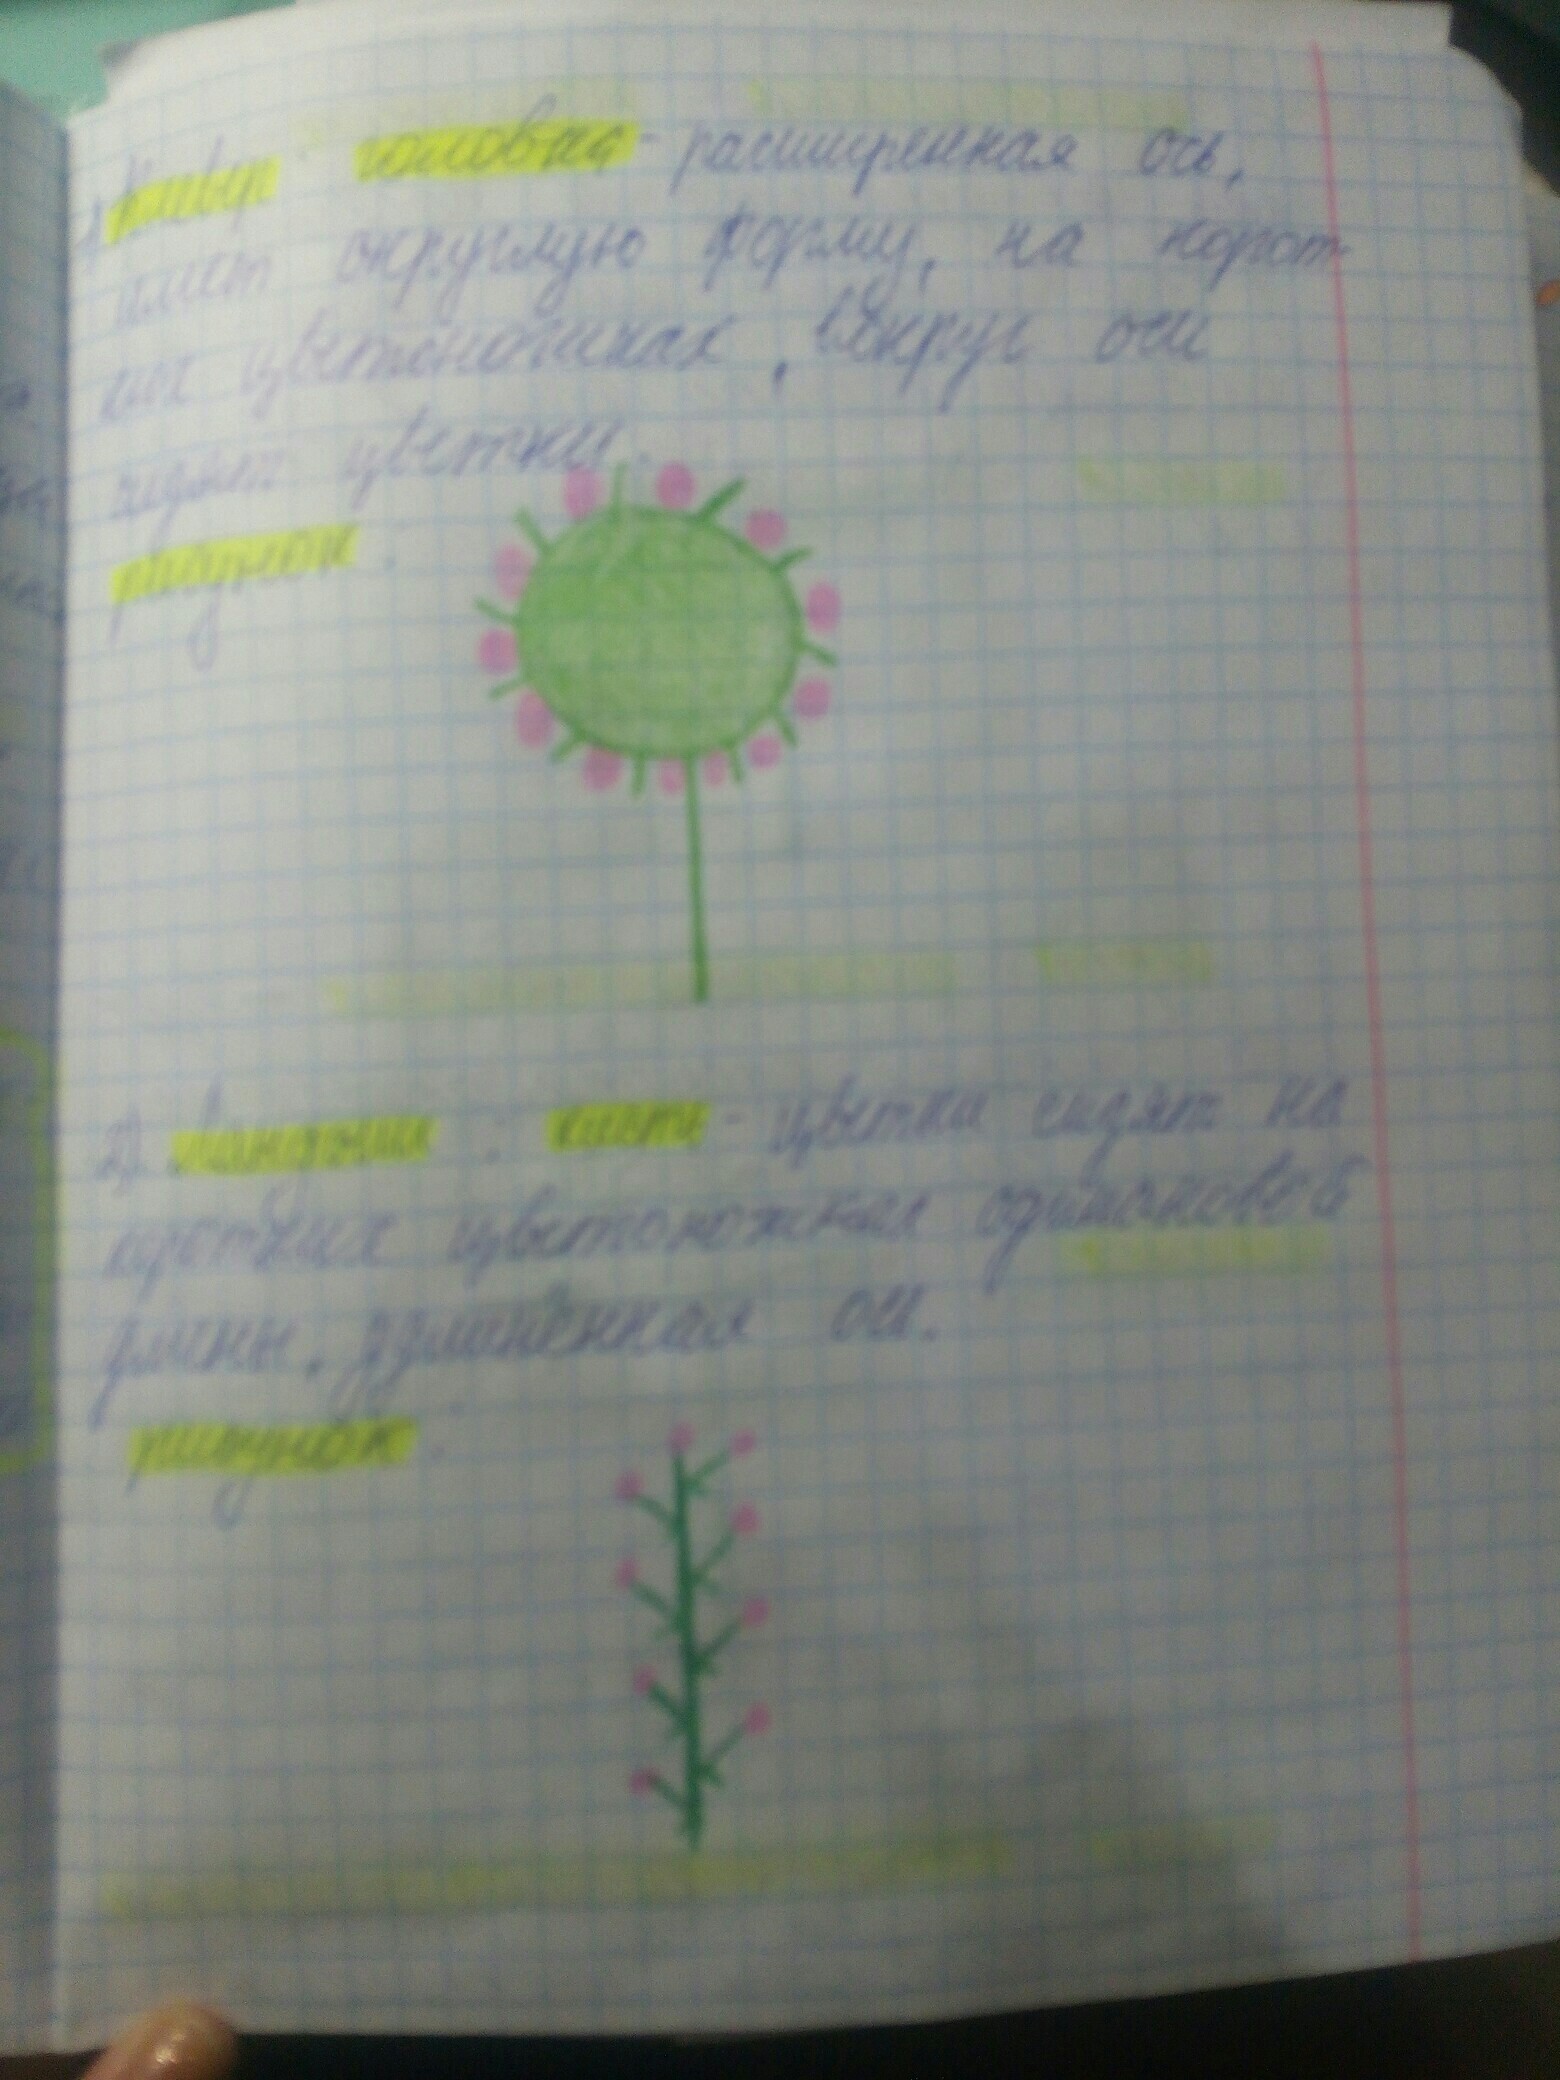 1) Клевер: головка - расширенная ось,
имеет округлую форму, на корот-
ких цветоножках, вокруг оси
сидят цветки.
рисунок:
2) Ландыш: кисть - цветки сидят на
коротких цветоножках одинаковой
длины, удлинённая ось.
рисунок: